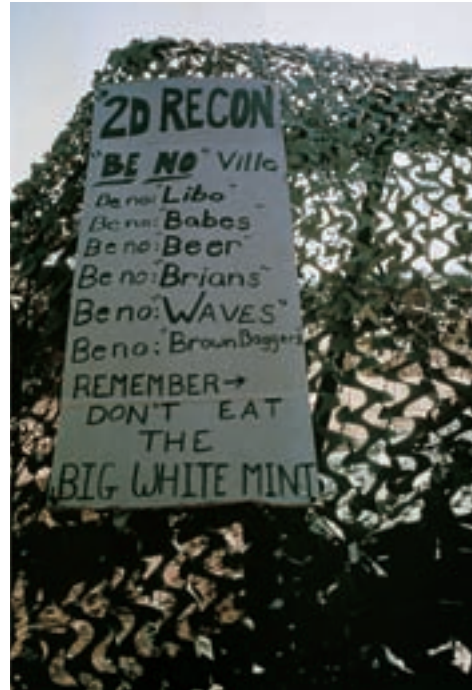 "2D RECON"
"BE NO" Ville
Be no: "Libo"
Be no: "Babes"
Be no: "Beer"
Be no: "Brians"
Be no: "WAVES"
Be no: "Brown Baggers"
REMEMBER→
DON'T EAT
THE
BIG WHITE MINT